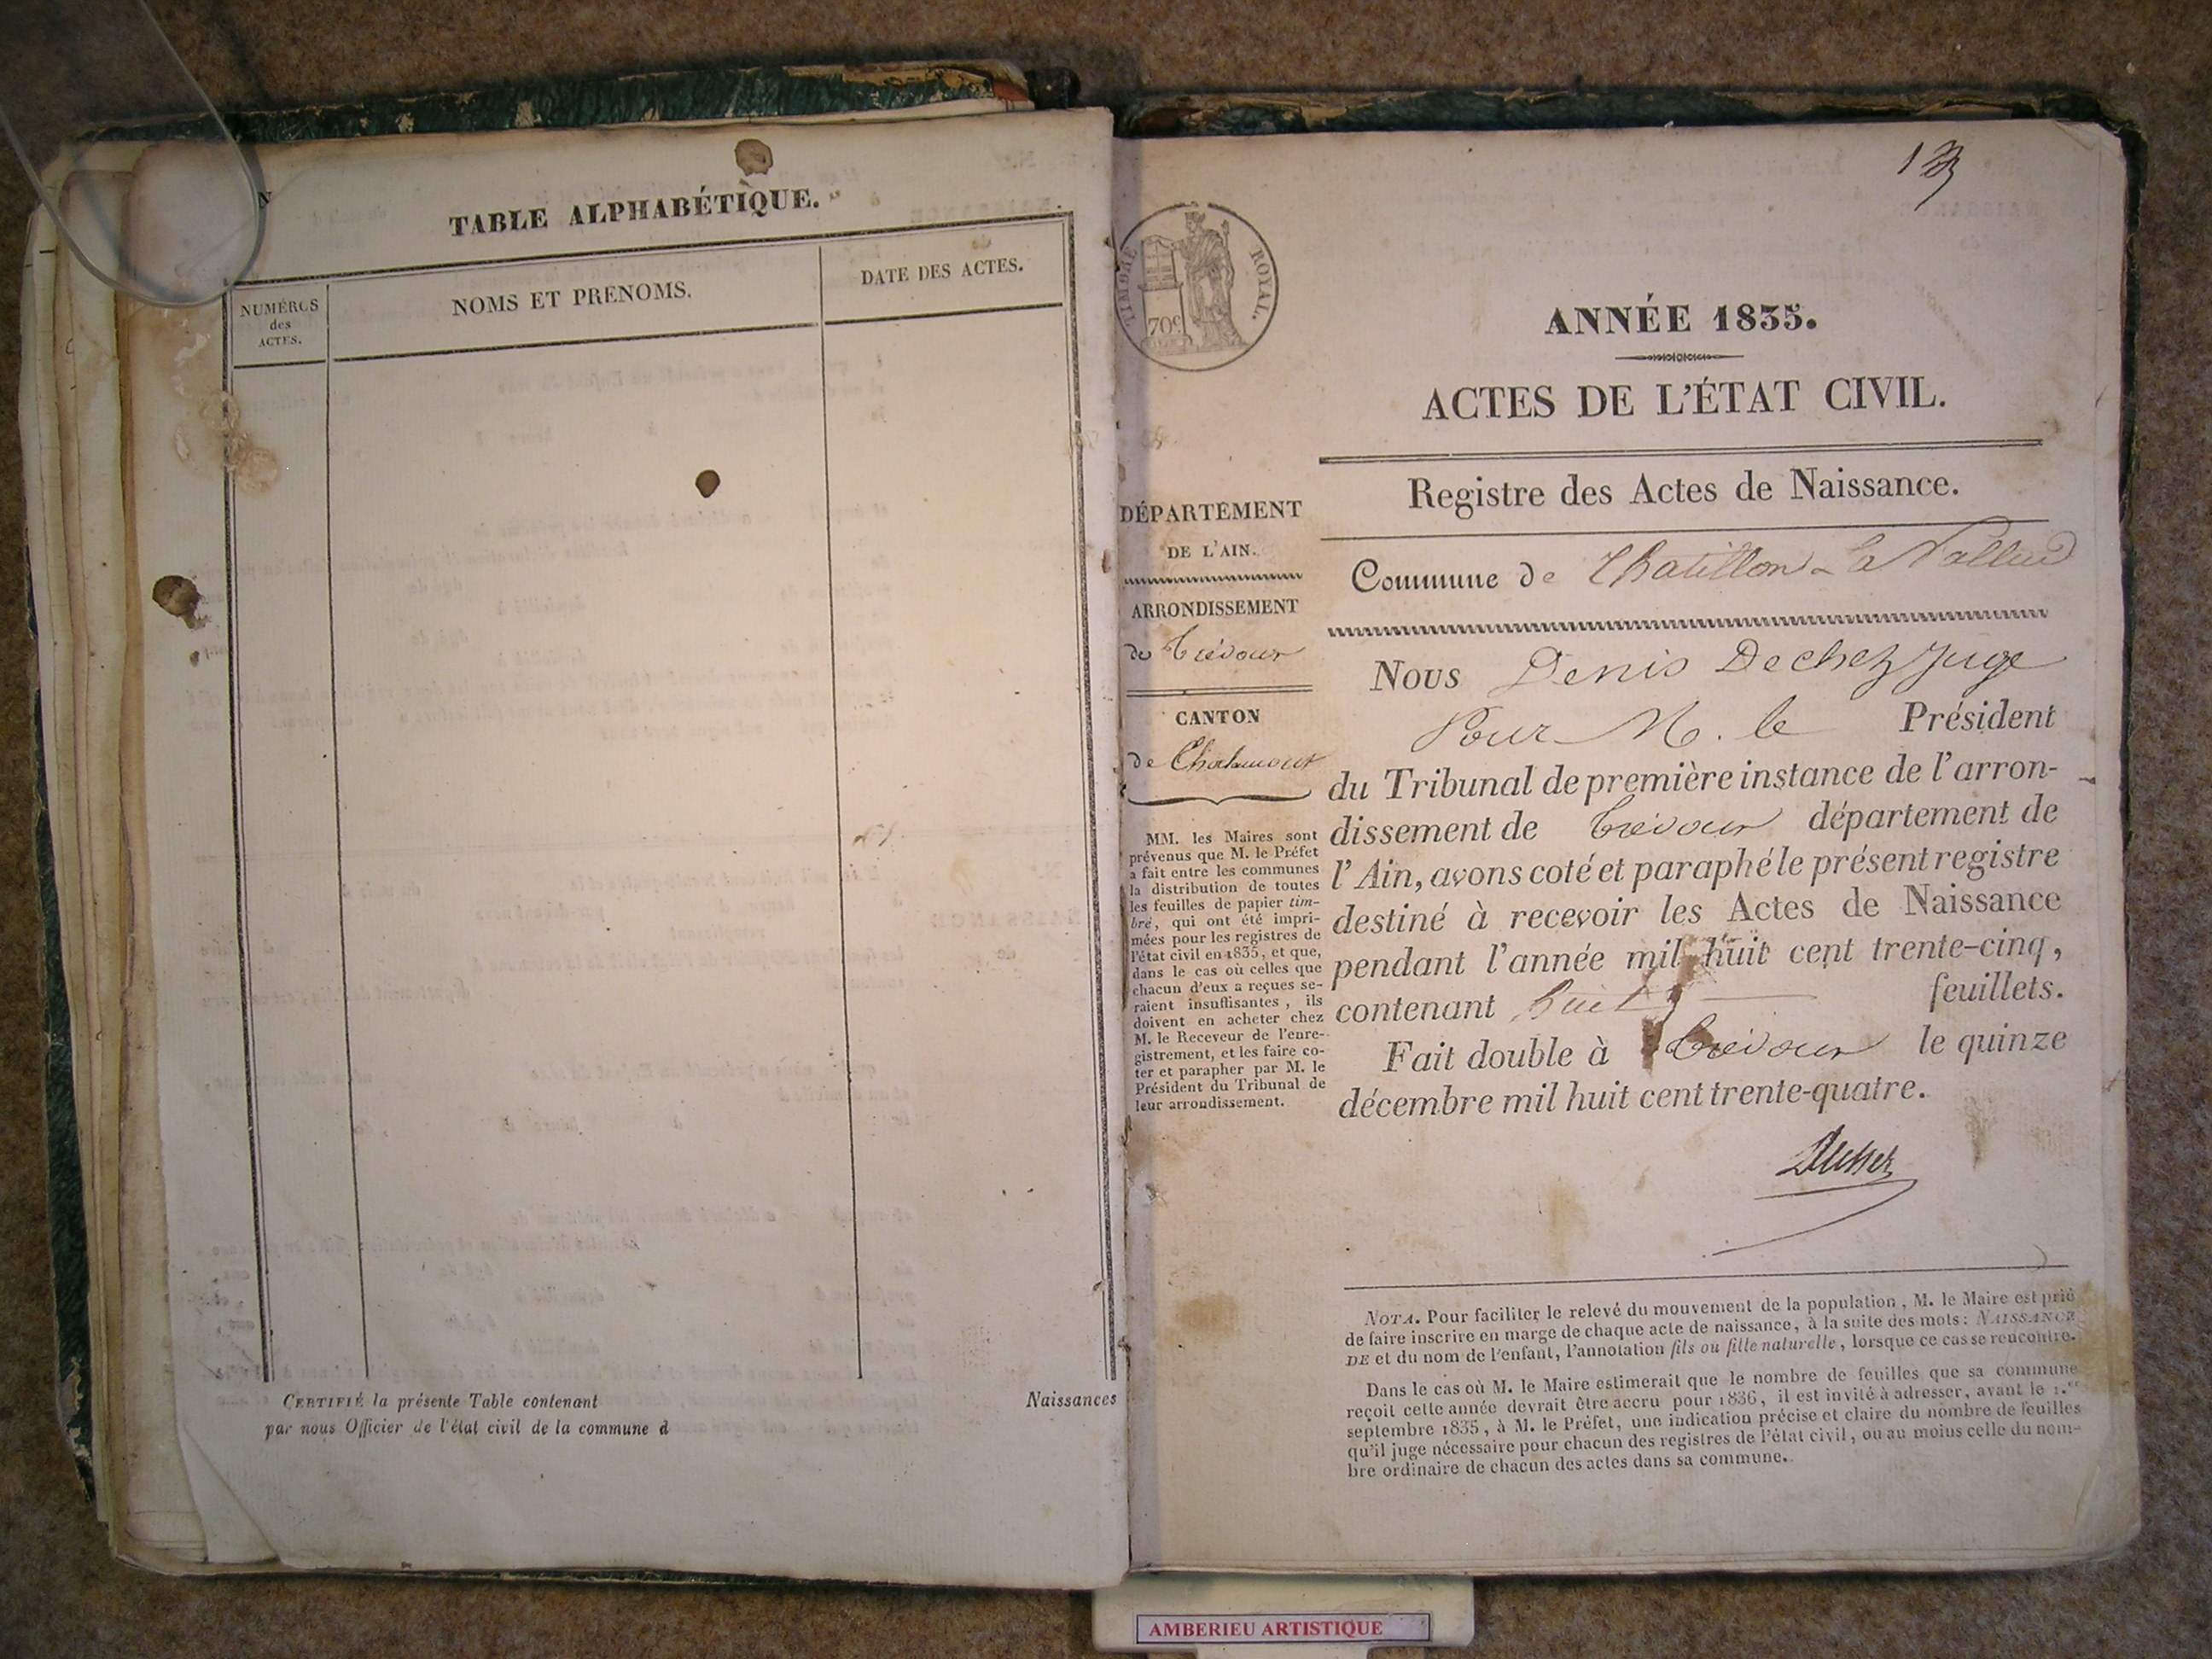 TABLE ALPHABÉTIQUE.
NUMÉROS
des
ACTES.
NOMS ET PRENOMS.
DATE DES ACTES.
CERTIFIÉ la présente Table contenant Naissances
par nous Officier de l'état civil de la commune d
TIMBRE ROYAL.
70c
ANNÉE 1835.
ACTES DE L'ÉTAT CIVIL.
Registre des Actes de Naissance.
DÉPARTEMENT
DE L'AIN.
ARRONDISSEMENT
de Trévoux
CANTON
de Chalamont
MM. les Maires sont
prévenus que M. le Préfet
a fait entre les communes
la distribution de toutes
les feuilles de papier tim-
bré, qui ont été impri-
mées pour les registres de
l'état civil en 1835, et que,
dans le cas où celles que
chacun d'eux a reçues se-
raient insuffisantes, ils
doivent en acheter chez
M. le Receveur de l'enre-
gistrement, et les faire co-
ter et parapher par M. le
Président du Tribunal de
leur arrondissement.
Commune de Chatillon-La Pallud
Nous Denis Dechez Juge
Pour M. le Président
du Tribunal de première instance de l'arron-
dissement de Trévoux département de
l'Ain, avons coté et paraphé le présent registre
destiné à recevoir les Actes de Naissance
pendant l'année mil huit cent trente-cinq,
contenant huit feuillets.
Fait double à Trévoux le quinze
décembre mil huit cent trente-quatre.
Dechez
NOTA. Pour faciliter le relevé du mouvement de la population, M. le Maire est prié
de faire inscrire en marge de chaque acte de naissance, à la suite des mots: NAISSANCE
DE et du nom de l'enfant, l'annotation fils ou fille naturelle, lorsque ce cas se rencontre.
Dans le cas où M. le Maire estimerait que le nombre de feuilles que sa commune
reçoit cette année devrait être accru pour 1836, il est invité à adresser, avant le 1.er
septembre 1835, à M. le Préfet, une indication précise et claire du nombre de feuilles
qu'il juge nécessaire pour chacun des registres de l'état civil, ou au moins celle du nom-
bre ordinaire de chacun des actes dans sa commune.
AMBERIEU ARTISTIQUE